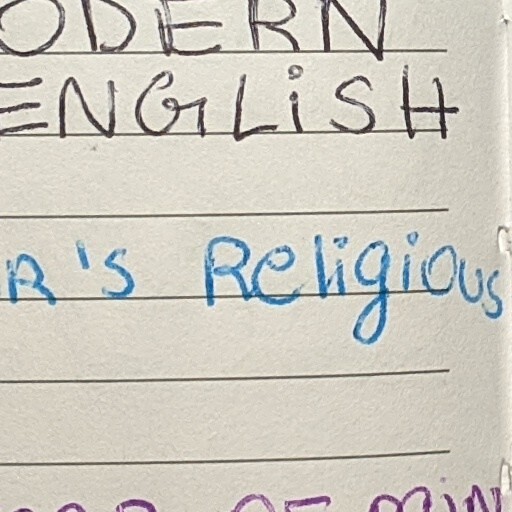 ODERN
ENGLiSH
R's Religious
OF MIN